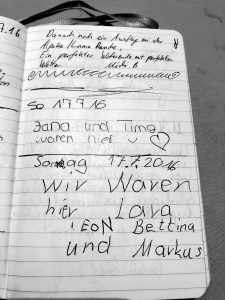 7.16
Danach noch ein Ausflug zu der
Alpaka Runde.
Ein perfektes Wochenende mit perfektem
Wetter
So 17.7.16
Jana und Timo
waren hier
Sonntag 17.7.2016
Wir Waren
hier Lara
! EON Bettina
und Markus